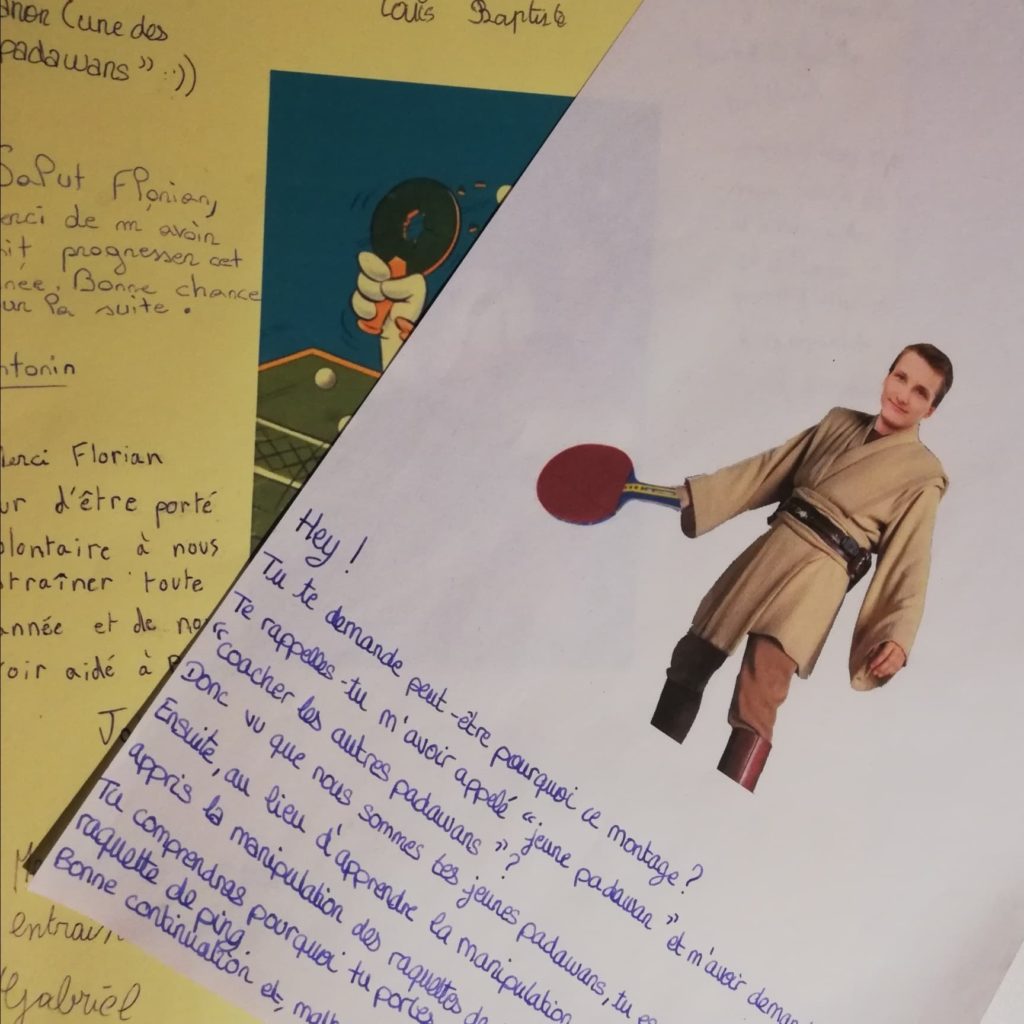 (une des
padawans" :))
Louis Baptiste
Salut Florian,
de m'avoir
progresser cet
Bonne chance
la suite.
Florian
d'être porté
à nous
toute
année et de
aidé à
Gabriel
Hey !
Tu te demande peut-être pourquoi ce montage ?
Te rappelles-tu m'avoir appelé "jeune padawan" et m'avoir
"coacher les autres padawans" ?
Donc vu que nous sommes tes jeunes padawans, tu
Ensuite, au lieu d'apprendre la manipulation
appris la manipulation des raquettes de
Tu comprendras pourquoi tu portes
raquette de ping.
Bonne continuation et,